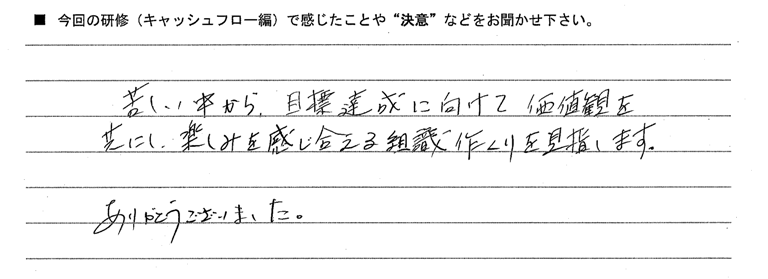 ■ 今回の研修（キャッシュフロー編）で感じたことや“決意”などをお聞かせ下さい。
苦しい中から、目標達成に向けて価値観を
共にし、楽しみを感じ合える組織作くりを目指します。
ありがとうございました。